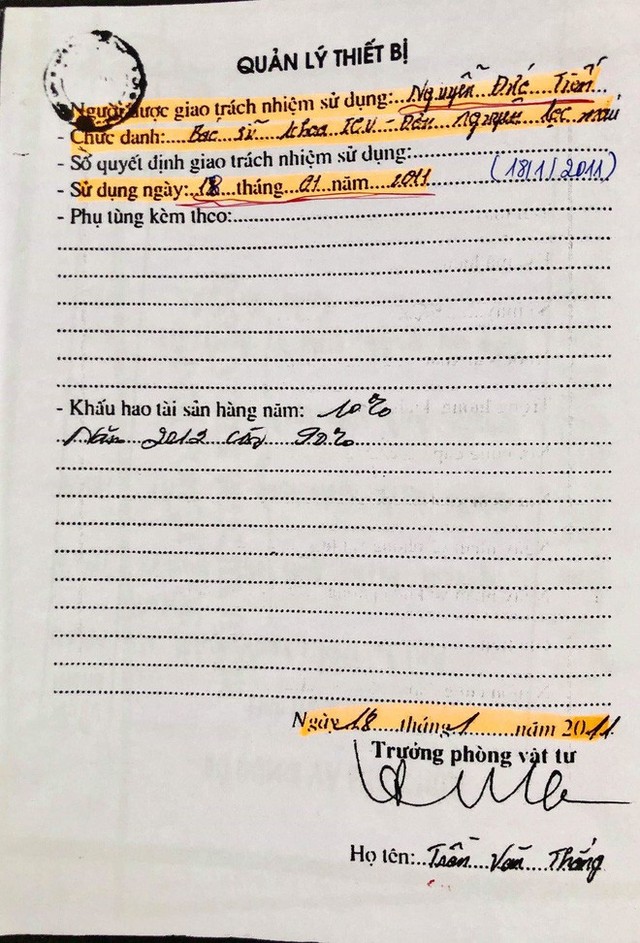 QUẢN LÝ THIẾT BỊ
- Người được giao trách nhiệm sử dụng: Nguyễn Đức Tiến
- Chức danh: Bác sĩ khoa ICU - Đơn nguyên lọc máu
- Số quyết định giao trách nhiệm sử dụng:
- Sử dụng ngày: 18 tháng 01 năm 2011 (18/1/2011)
- Phụ tùng kèm theo:
- Khấu hao tài sản hàng năm: 10%
Năm 2012 còn 90%
Ngày 18 tháng 1 năm 2011
Trưởng phòng vật tư
Họ tên: Trần Văn Thắng